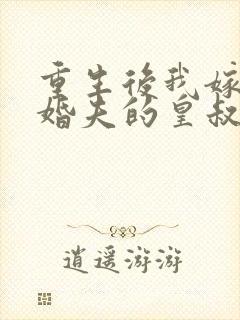 重生後我嫁
婚夫的皇叔
逍遥游游